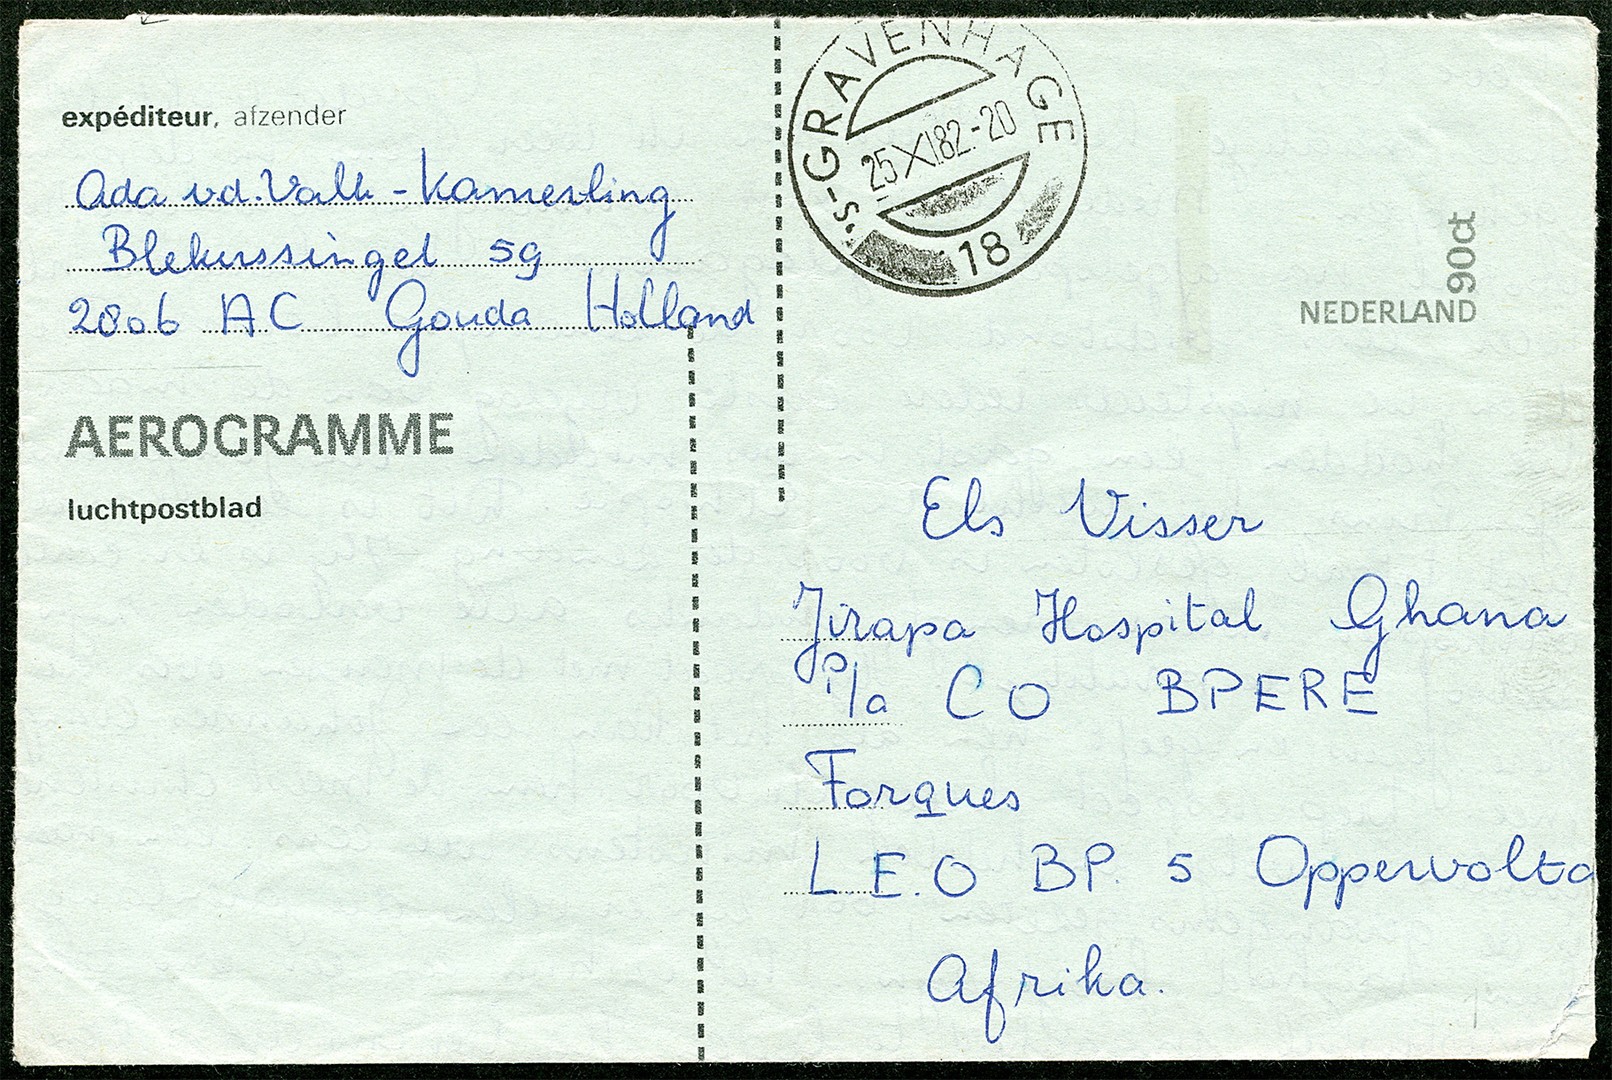 expéditeur, afzender
Ada v.d. Valk - Kamerling
Blekerssingel 59
2806 AC Gouda Holland
AEROGRAMME
luchtpostblad
's-GRAVENHAGE
25 XI.82.-20
18
90ct
NEDERLAND
Els Visser
Jirapa Hospital Ghana
P/a CO BPERE
Forques
L.E.O BP. 5 Oppervolta
Afrika.